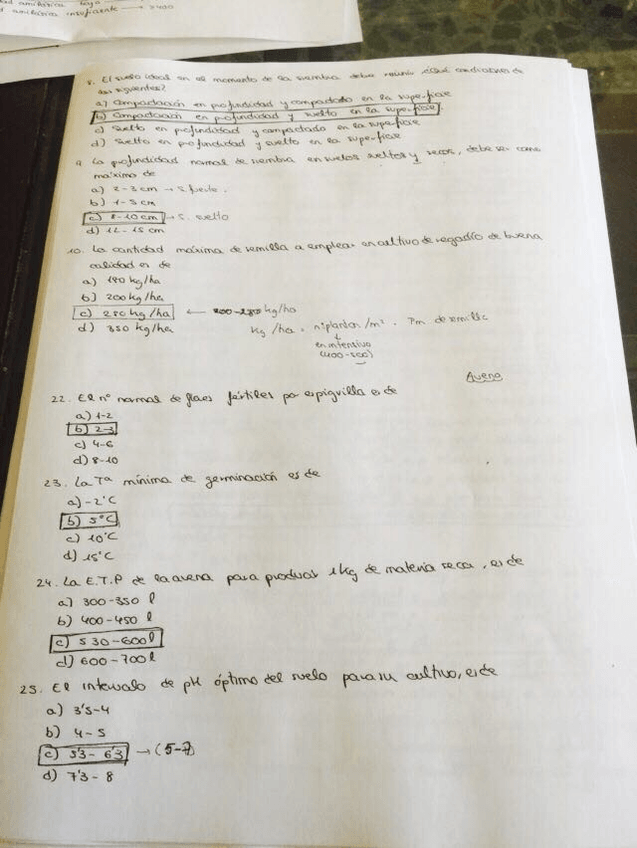 amilásica baja
amilásica insuficiente → >400
8. El suelo ideal en el momento de la siembra debe reunir ¿Qué condiciones de
las siguientes?
a) Compactación en profundidad y compactado en la superficie
b) Compactación en profundidad y suelto en la superficie.
c) Suelto en profundidad y compactado en la superficie
d) Suelto en profundidad y suelto en la superficie
9. La profundidad normal de siembra en suelos sueltos y secos, debe ser como
máximo de
a) 2-3 cm → S. fuerte.
b) 1-5 cm
c) 8-10 cm → S. suelto
d) 12-15 cm
10. La cantidad máxima de semilla a emplear en cultivo de regadío de buena
calidad es de
a) 180 kg/ha
b) 200 kg/ha
c) 250 kg/ha ← kg/ha
d) 350 kg/ha
kg/ha = nºplantas/m² · Pm de semilla
en intensivo
(400-500)
Avena
22. El nº normal de flores fértiles por espiguilla es de
a) 1-2
b) 2-3
c) 4-6
d) 8-10
23. La Tª mínima de germinación es de
a) -2ºC
b) 5ºC
c) 10ºC
d) 15ºC
24. La E.T.P de la avena para producir 1 kg de materia seca, es de
a) 300-350 l
b) 400-450 l
c) 530-600 l
d) 600-700 l
25. El intervalo de pH óptimo del suelo para su cultivo, es de
a) 3'5-4
b) 4-5
c) 5'3-6'3 → (5-7)
d) 7'3-8